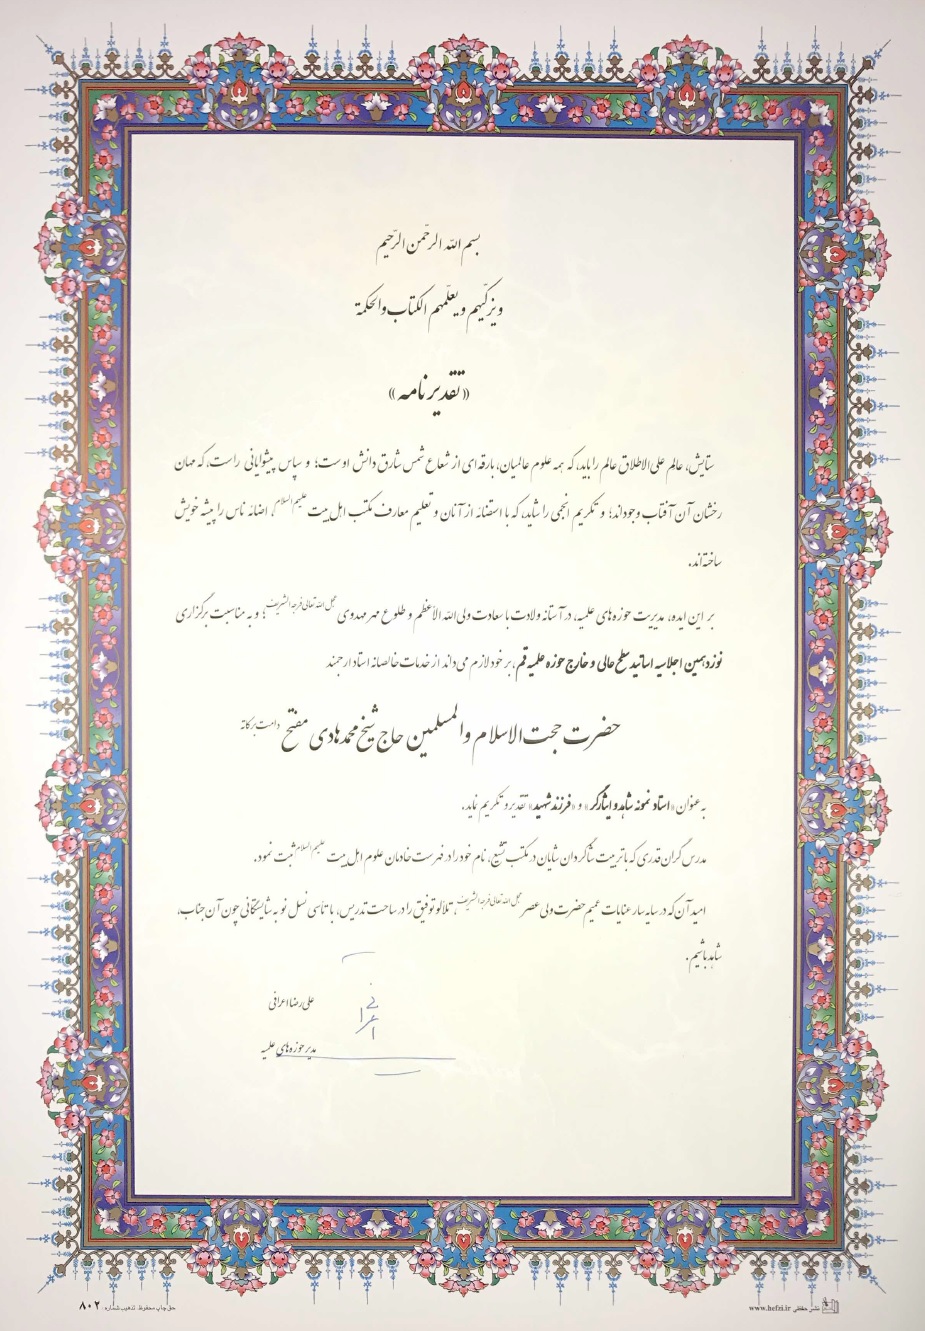 بسم الله الرحمن الرحیم
ویزکیهم و یعلمهم الکتاب والحکمة
«تقدیرنامه»
ستایش، عالم علی‌الاطلاق عالم را باید، که همه علوم عالمیان، بارقه‌ای از شعاع شمس شارق دانش اوست؛ و سپاس پیشوایانی راست، که مهان
رخشان آن آفتاب وجوداند؛ و تکریم انجمی را شاید، که با استضائه از آنان و تعلیم معارف مکتب اهل بیت علیهم‌السلام، اضائه ناس را پیشه خویش
ساخته‌اند.
بر این ایده، مدیریت حوزه‌های علمیه، در آستانه ولادت با سعادت ولی‌الله الاعظم و طلوع مهر مهدوی عجل‌الله‌تعالی‌فرجه‌الشریف؛ و به مناسبت برگزاری
نوزدهمین اجلاسیه اساتید سطح عالی و خارج حوزه علمیه قم، بر خود لازم می‌داند از خدمات خالصانه استاد ارجمند
حضرت حجت‌الاسلام والمسلمین حاج شیخ محمدهادی مفتح دامت‌برکاته
به عنوان «استاد نمونه شاهد و ایثارگر» و «فرزند شهید» تقدیر و تکریم نماید.
مدرس گران‌قدری که با تربیت شاگردان شایان در مکتب تشیع، نام خود را در فهرست خادمان علوم اهل بیت علیهم‌السلام ثبت نمود.
امید آن که در سایه‌سار عنایات عمیم حضرت ولی عصر عجل‌الله‌تعالی‌فرجه‌الشریف، تلالو توفیق را در ساحت تدریس، با تأسی نسل نو به شایستگانی چون آن جناب،
شاهد باشیم.
علی‌رضا اعرافی
مدیر حوزه‌های علمیه
نشر حفظی www.hefri.ir
حق چاپ محفوظ تذهیب شماره: ۸۰۲